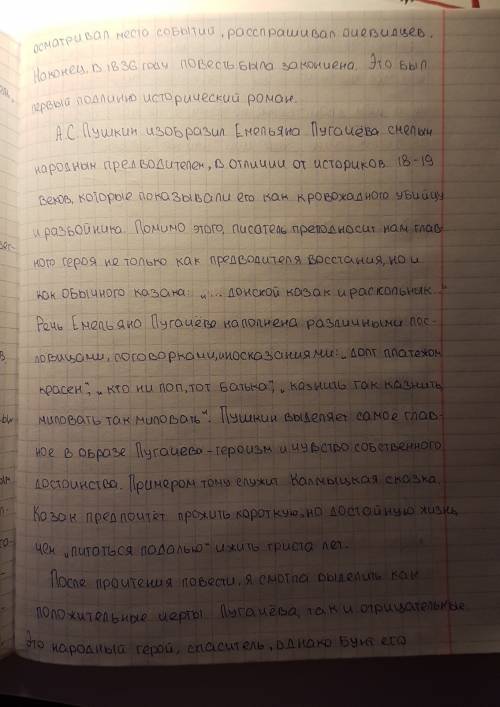 осматривал место событий, расспрашивал очевидцев.
Наконец, в 1836 году повесть была закончена. Это был
первый подлинно исторический роман.
А.С. Пушкин изобразил Емельяна Пугачёва смелым
народным предводителем, в отличии от историков 18-19
веков, которые показывали его как кровожадного убийцу
и разбойника. Помимо этого, писатель преподносит нам глав-
ного героя не только как предводителя восстания, но и
как обычного казака: „... донской казак и раскольник..."
Речь Емельяна Пугачёва наполнена различными пос-
ловицами, поговорками, иносказаниями: „долг платежом
красен", „кто ни поп, тот батька", „казнить так казнить,
миловать так миловать". Пушкин выделяет самое глав-
ное в образе Пугачева - героизм и чувство собственного
достоинства. Примером тому служит Калмыцкая сказка.
Казак предпочтёт прожить короткую, но достойную жизнь,
чем „питаться падалью" и жить триста лет.
После прочтения повести, я смогла выделить как
положительные черты Пугачёва, так и отрицательные.
Это народный герой, спаситель, однако бунт его